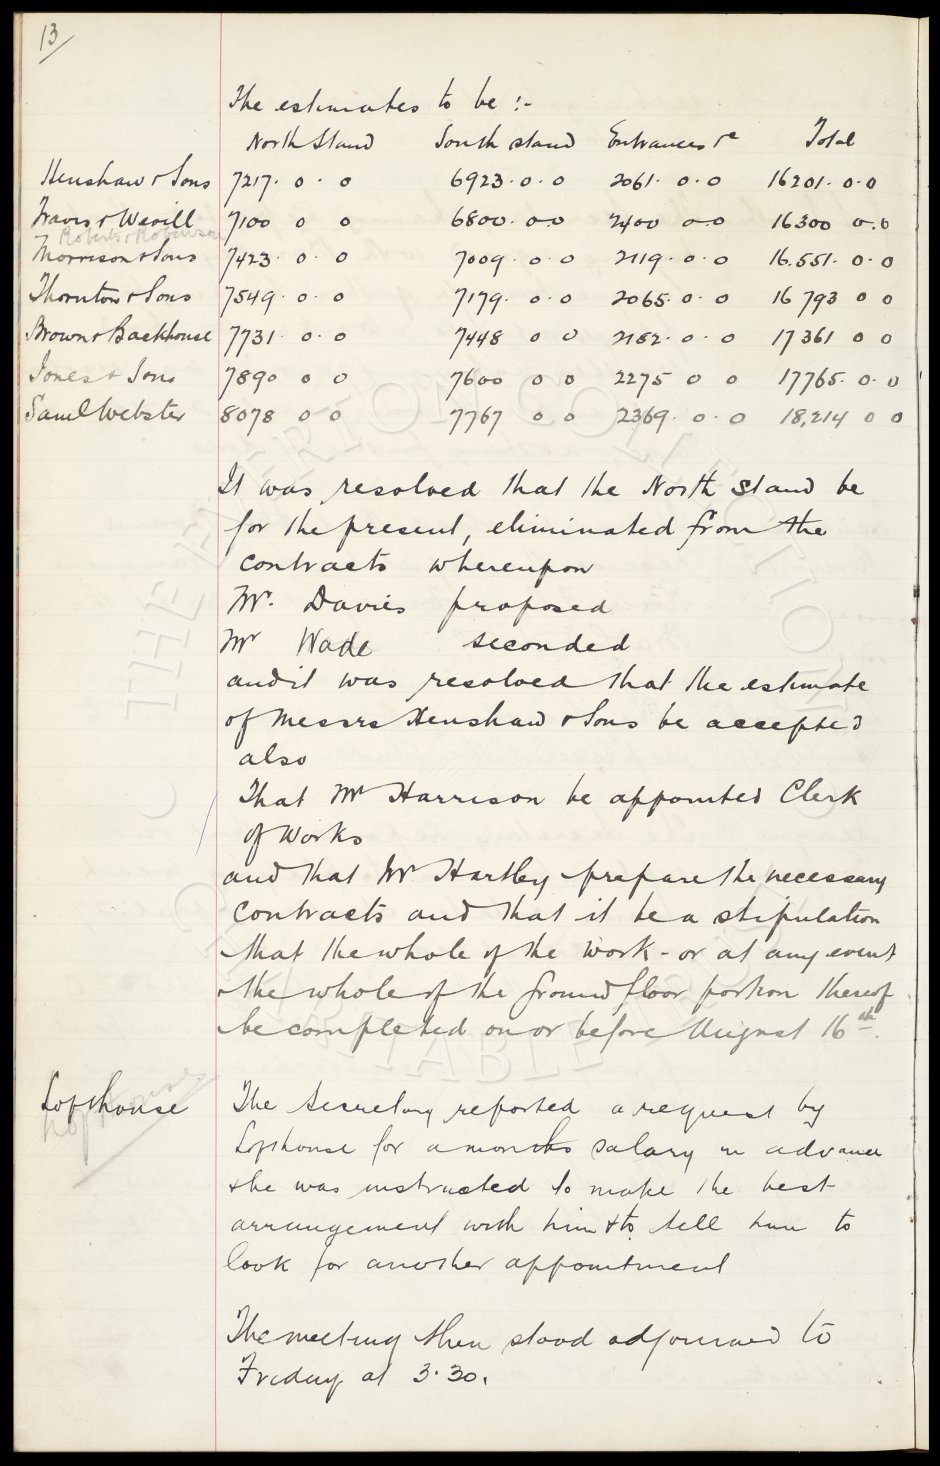 13/
The estimates to be :-
North Stand South stand Entrances &c Total
Henshaw & Sons 7217. 0. 0 6923. 0. 0 2061. 0. 0 16201. 0. 0
Travis & Wevill 7100 0 0 6800. 0. 0 2400 0. 0 16300 0. 0
Roberts & Robinson
Morrison & Sons 7423. 0. 0 7009. 0. 0 2119. 0. 0 16.551. 0. 0
Thornton & Sons 7549. 0. 0 7179. 0. 0 2065. 0. 0 16793 0 0
Brown & Backhouse 7731. 0. 0 7448 0 0 2182. 0. 0 17361 0 0
Jones & Sons 7890 0 0 7600 0 0 2275 0 0 17765. 0. 0
Saml Webster 8078 0 0 7767 0 0 2369. 0. 0 18,214 0 0
It was resolved that the North Stand be
for the present, eliminated from the
contracts whereupon
Mr. Davies proposed
Mr Wade seconded
and it was resolved that the estimate
of Messrs Henshaw & Sons be accepted
also
That Mr Harrison be appointed Clerk
of Works
and that Mr Hartley prepare the necessary
contracts and that it be a stipulation
that the whole of the work - or at any event
the whole of the ground floor portion thereof
be completed on or before August 16th.
Lofthouse
The Secretary reported a request by
Lofthouse for a months salary in advance
& he was instructed to make the best
arrangement with him & to tell him to
look for another appointment
The meeting then stood adjourned to
Friday at 3.30.
THE EVERTON COLLECTION
CHARITABLE TRUST